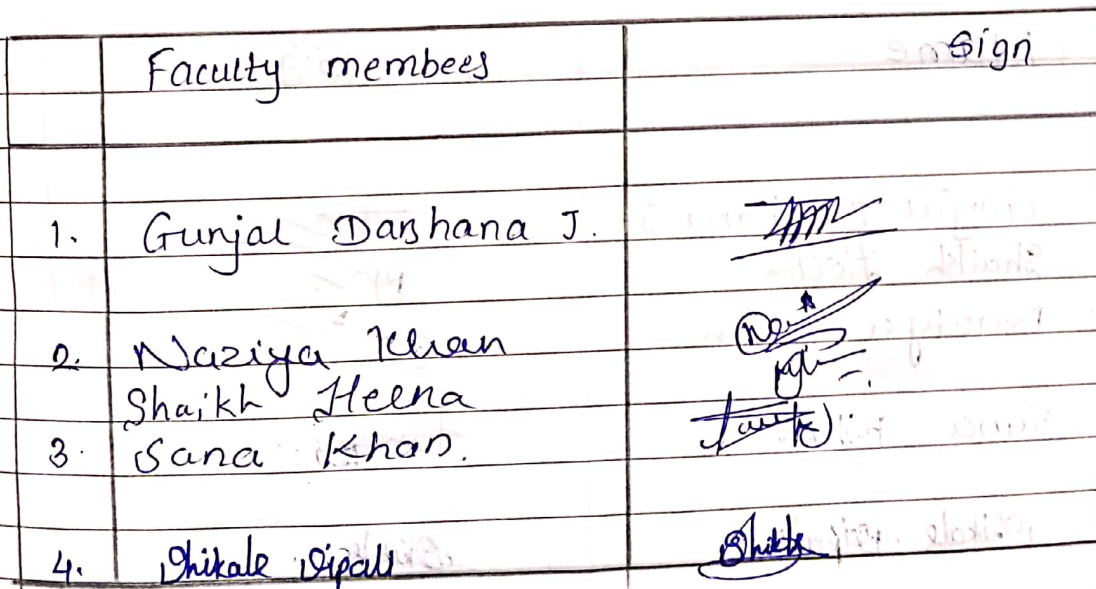 Faculty membees Sign
1. Gunjal Darshana J.
2. Naziya Khan
Shaikh Heena
3. Sana Khan.
4. Shikale Dipali